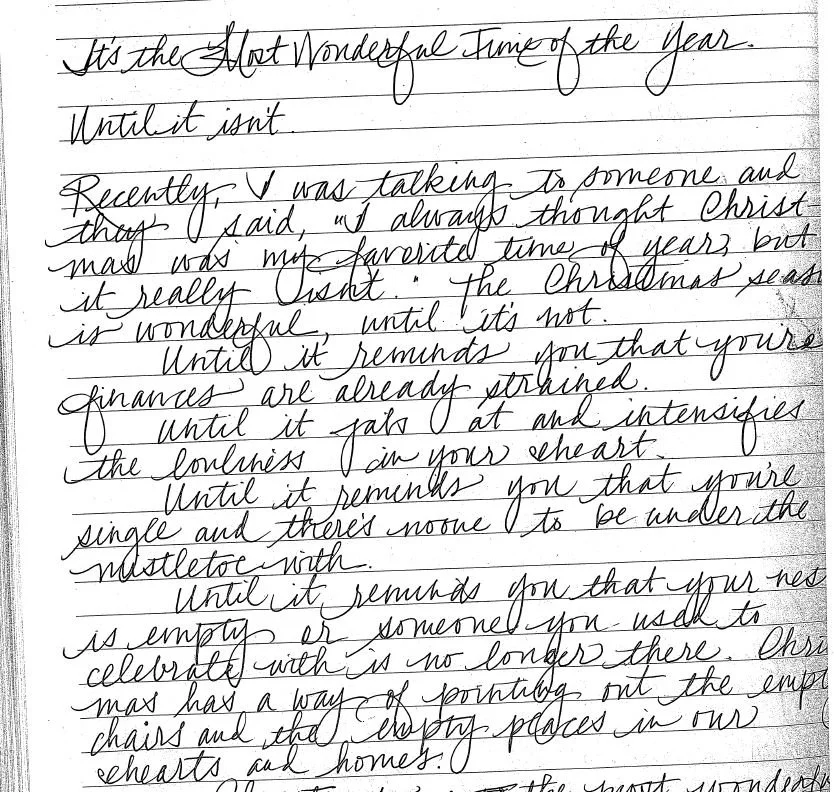 It's the Most Wonderful Time of the Year.
Until it isn't.
Recently, I was talking to someone and
they said, "I always thought Christ-
mas was my favorite time of year, but
it really isn't." The Christmas seas
is wonderful, until it's not.
Until it reminds you that you're
finances are already strained.
Until it jabs at and intensifies
the lonliness in your heart.
Until it reminds you that you're
single and there's noone to be under the
mistletoe with.
Until it reminds you that your nes
is empty or someone you used to
celebrate with is no longer there. Chri
mas has a way of pointing out the empt
chairs and the empty places in our
hearts and homes.
the most wonderfu